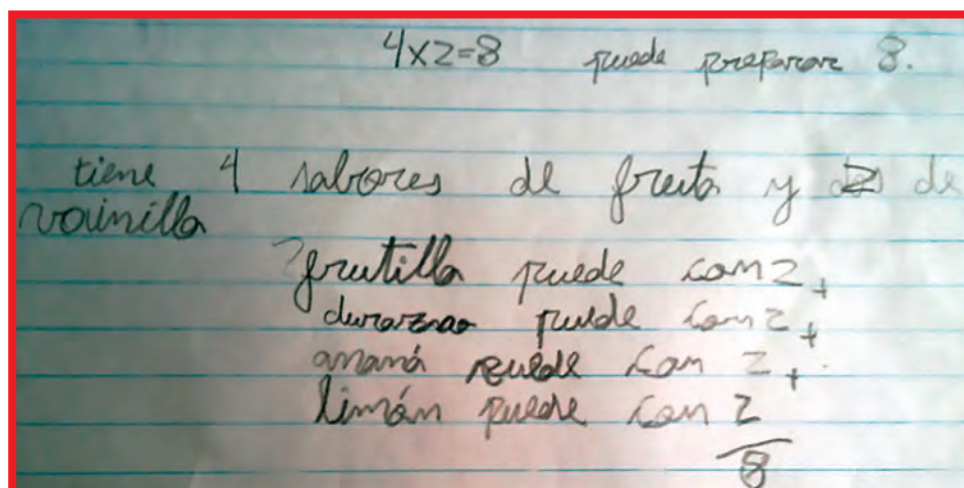 4x2=8 puede preparar 8.
tiene 4 sabores de fruta y 2 de
vainilla
frutilla puede con 2 +
durazno puede con 2 +
ananá puede con 2 +
limón puede con 2
8